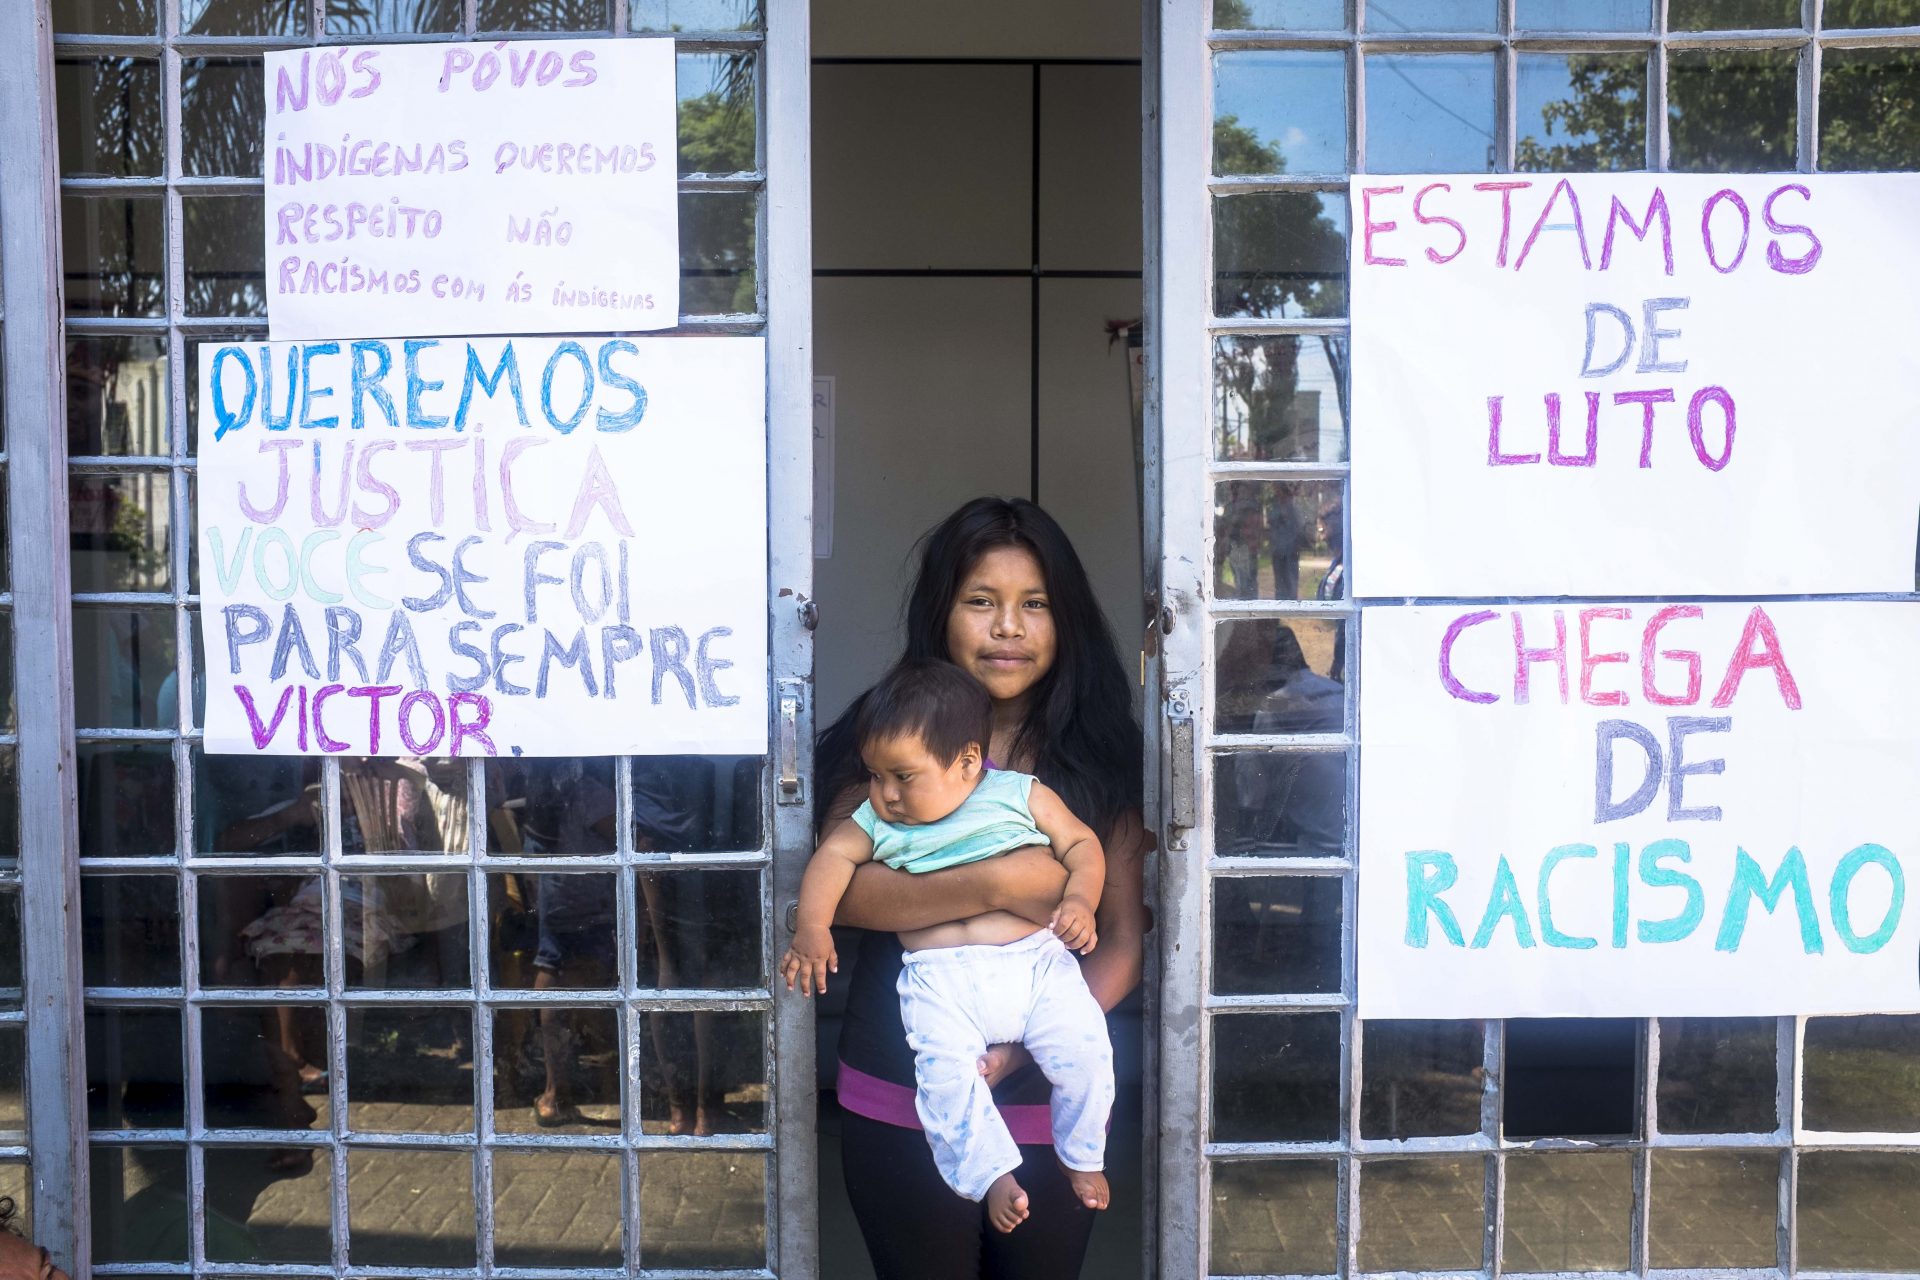 NÓS PÓVOS
INDÍGENAS QUEREMOS
RESPEITO NÃO
RACÍSMOS COM ÁS INDÍGENAS
QUEREMOS
JUSTIÇA
VOCÊ SE FOI
PARA SEMPRE
VICTOR.
ESTAMOS
DE
LUTO
CHEGA
DE
RACISMO